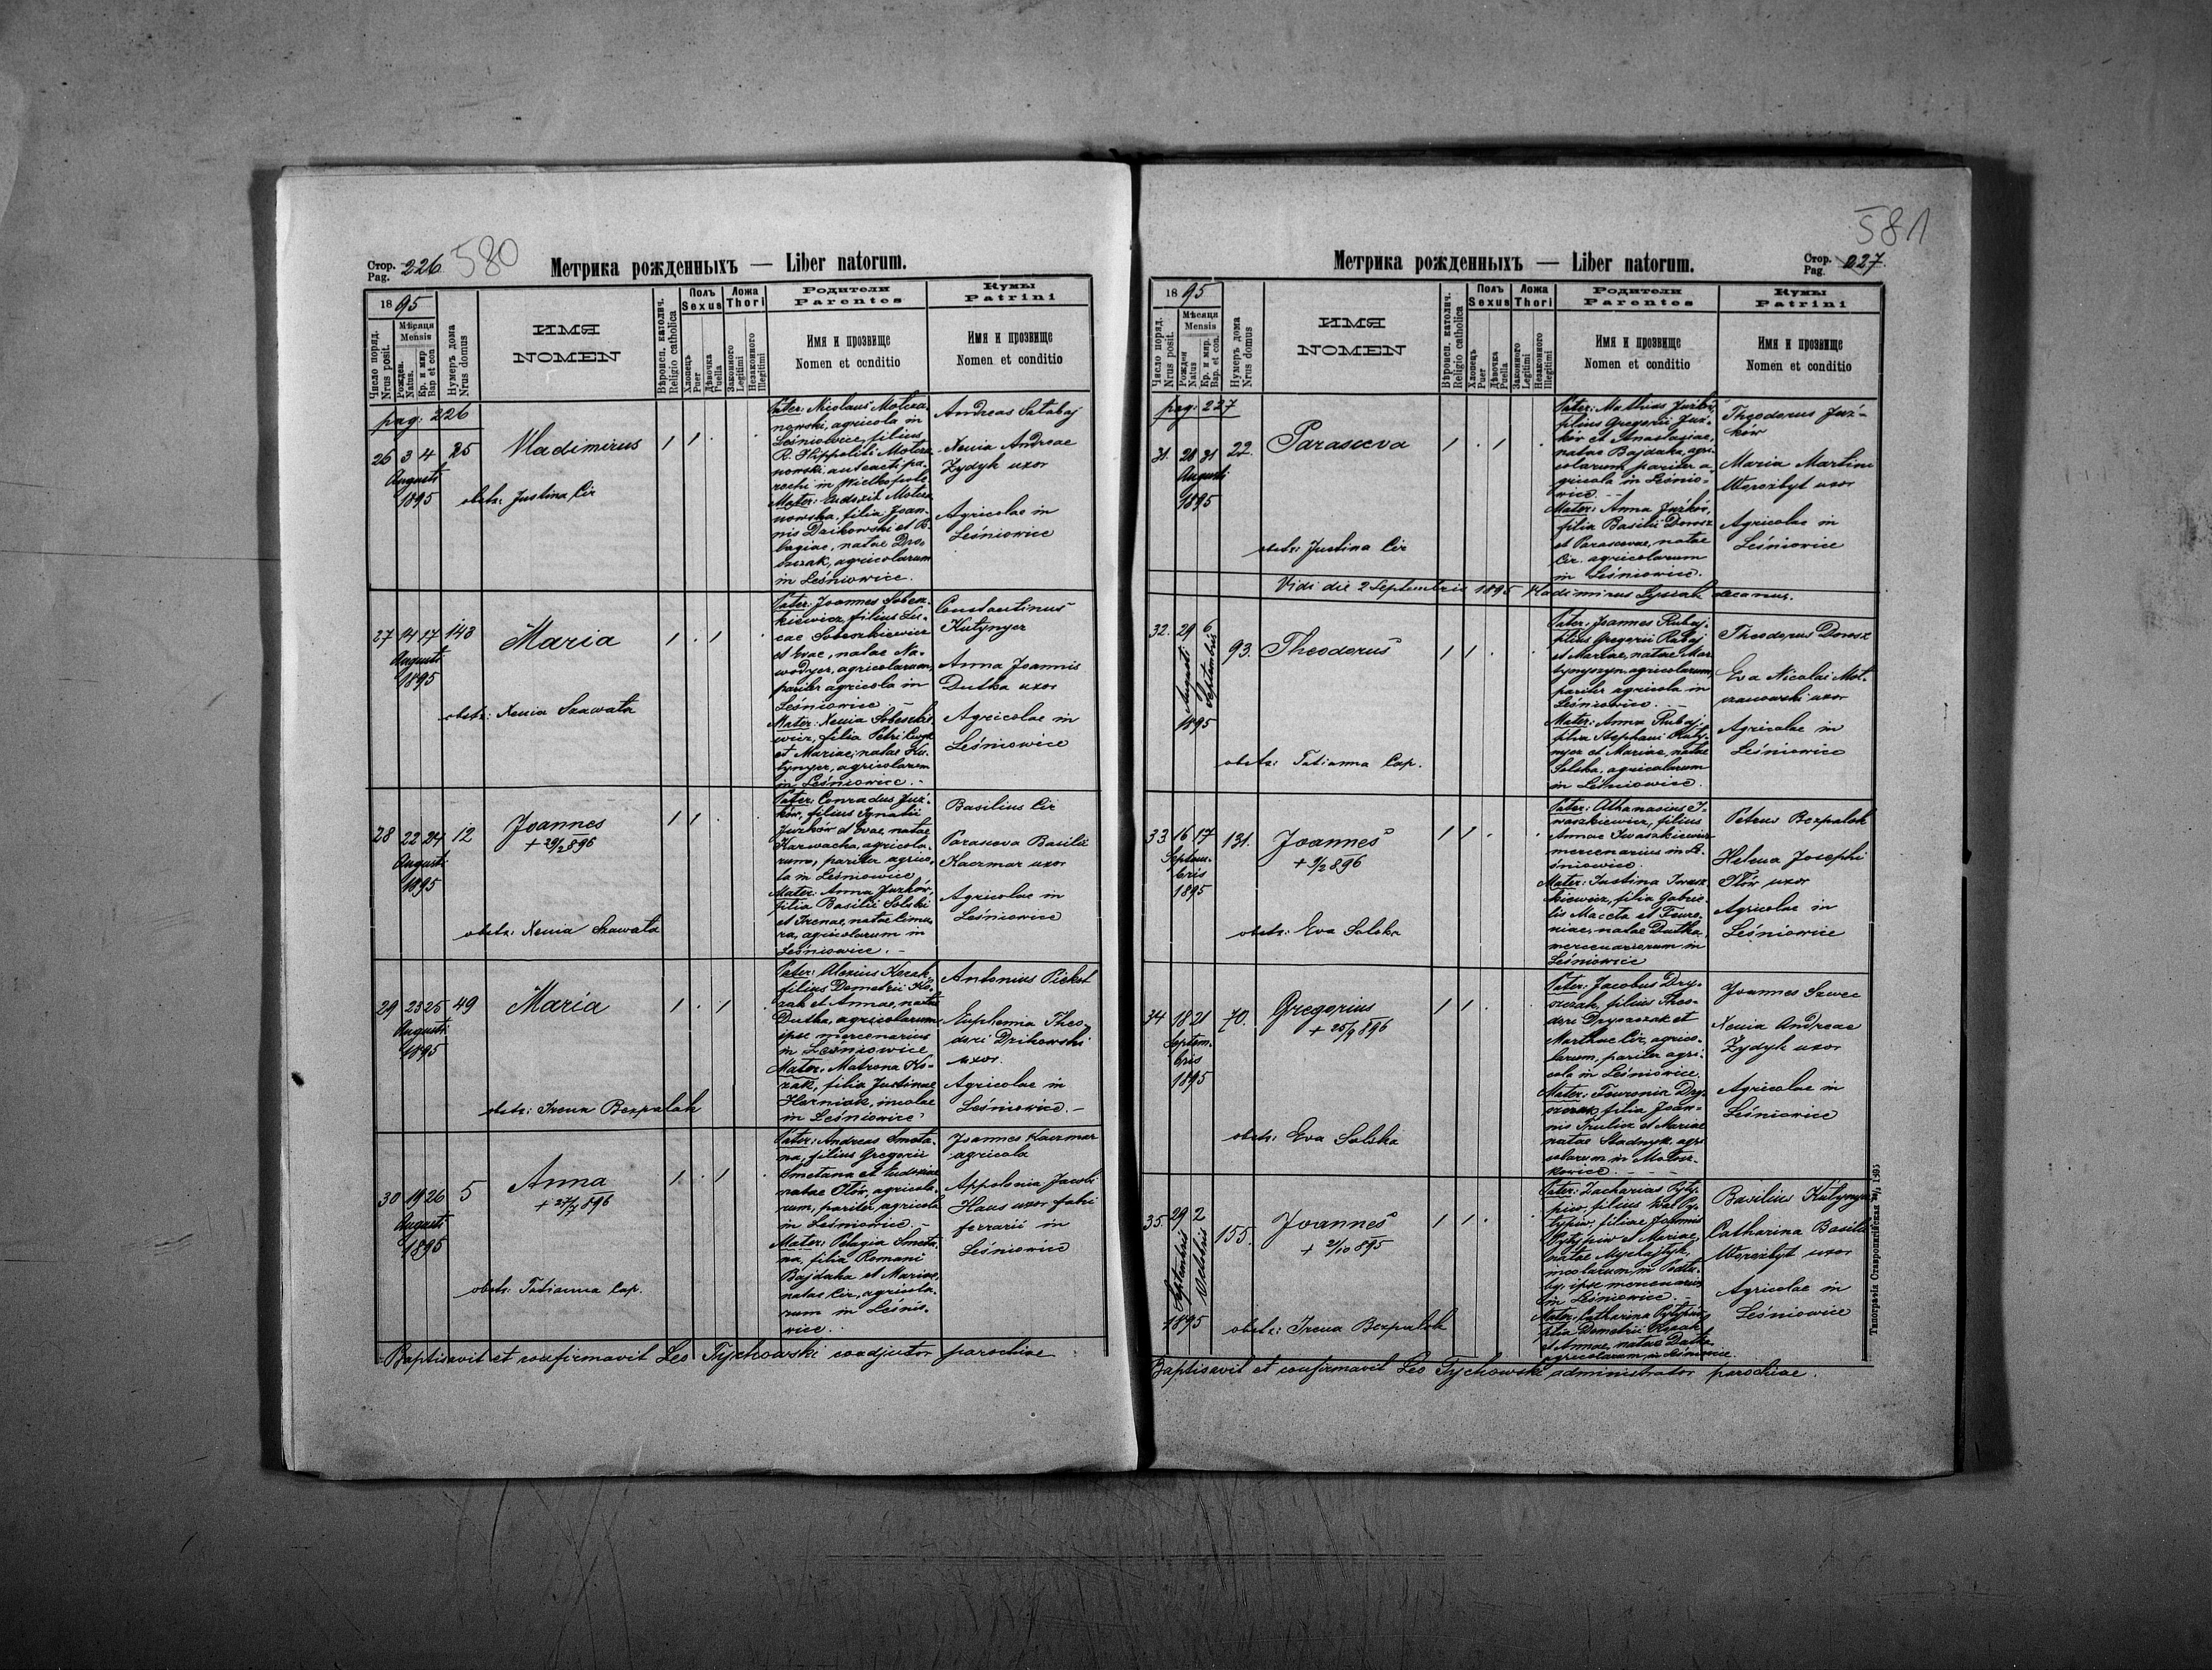 Стор. Pag. 226. 580
Метрика рожденныхъ — Liber natorum.
1895
Число поряд. Nrus posit.
Мѣсяця Mensis
Рожден. Natus.
Кр. и мир. Bap. et con
Нумеръ дома Nrus domus
ИМЯ
NOMEN
Вѣроисп. католич. Religio catholica
Полъ Sexus
Хлопецъ Puer
Дѣвочка Puella
Ложа Thori
Законного Legitimi
Незаконного Illegitimi
Родители
Parentes
Имя и прозвище
Nomen et conditio
Кумы
Patrini
Имя и прозвище
Nomen et conditio
pag: 226
26 3 4 25
Augusti
1895
Vladimirus
obstr: Justina Cir
Pater: Nicolaus Motcza-
nowski, agricola in
Leśniowice, filius
R. Hippoliti Motcza
nowski anteacti pa-
rochi in Wielkopole
Mater:
nowska, filia Joan-
nis Dzikowski et
lagiae, natae Dro-
szczak, agricolarum
in Leśniowice.
Andreas Satabaj
Xenia Andreae
Zydyk uxor
Agricolae in
Leśniowice
27 14 17 143
Augusti
1895
Maria
obstr: Xenia Szawata
Pater: Joannes Sobesz-
kiewicz, filius Lu-
cae Sobeszkiewicz
et Evae, natae Na-
wodyer, agricolarum,
pariter agricola in
Leśniowice
Mater: Xenia Sobeszkie
wicz, filia Petri
et Mariae, natae Ku-
tynyer, agricolarum
in Leśniowice.-
Constantinus
Kutynyer
Anna Joannis
Dutka uxor
Agricolae in
Leśniowice
28 22 24 12
Augusti
1895
Joannes
+ 29/2 896
obstr: Xenia Szawata
Pater: Conradus Juz-
ków, filius Ignatii
Juzków et Evae, natae
Karwacka, agricola-
rum, pariter agrico-
la in Leśniowice
Mater: Anna Juzków,
filia Basilii Solski
et Irenae, natae
ra, agricolarum in
Leśniowice.-
Basilius Cir
Parascva Basilii
Kaczmar uxor
Agricolae in
Leśniowice
29 23 25 49
Augusti
1895
Maria
obstr: Irena Bezpalak
Pater: Alexius Kozak,
filius Demetrii Ko-
zak et Annae, natae
Dutka, agricolarum
ipse mercenarius
in Leśniowice
Mater: Matrona Ko-
zak, filia Justinae
Harniak, incolae
in Leśniowice
Antonius Piekot
Euphemia Theo-
dori Dzikowski
uxor.
Agricolae in
Leśniowice.-
30 19 26 5
Augusti
1895
Anna
+ 27/7 896
obstr: Tatianna Cap.
Pater: Andreas Smeta-
na, filius Gregorii
Smetana et Eudoxiae
natae Otór, agricola-
rum, pariter agricola
in Leśniowice.-
Mater: Pelagia Smeta-
na, filia Romani
Bajdaka et Mariae,
natae Cir, agricola-
rum in Leśnio-
wice.
Joannes Kaczmar
agricola
Appolonia Jacobi
Haus uxor fabri
ferrarii in
Leśniowice
Baptisavit et confirmavit Leo Tychowski coadjutor parochiae
581
Метрика рожденныхъ — Liber natorum.
Стор. Pag. 227.
1895
Число поряд. Nrus posit.
Мѣсяця Mensis
Рожден Natus
Кр. и мир. Bap. et con.
Нумеръ дома Nrus domus
ИМЯ
NOMEN
Вѣроисп. католич. Religio catholica
Полъ Sexus
Хлопецъ Puer
Дѣвочка Puella
Ложа Thori
Законного Legitimi
Незаконного Illegitimi
Родители
Parentes
Имя и прозвище
Nomen et conditio
Кумы
Patrini
Имя и прозвище
Nomen et conditio
pag: 227
31. 28 31 22.
Augusti
1895
Parasceva
obstr: Justina Cir
Pater: Mathias Juzków,
filius Gregorii Juz-
ków et Anastasiae,
natae Bajdaka, agri-
colarum pariter a-
gricola in Leśnio-
wice.
Mater: Anna Juzków,
filia Basilii Dorosz
et Parascevae, natae
Cir, agricolarum
in Leśniowice.
Theodorus Juz-
ków
Maria Martini
Werezbyt uxor
Agricolae in
Leśniowice
Vidi die 2 Septembris 1895 Vladimirus Lysiak decanus.
32. 29 6 93.
Augusti Septembris
1895
Theodorus
obstr: Tatianna Cap.
Pater: Joannes Rubaj,
filius Gregorii Rubaj
et Mariae, natae Mar
tynyszyn, agricolarum,
pariter agricola in
Leśniowice.-
Mater: Anna Rubaj,
filia Stephani Kuty-
nyer et Mariae, natae
Solska, agricolarum
in Leśniowice.
Theodorus Dorosz
Eva Nicolai Mot-
czanowski uxor
Agricolae in
Leśniowice
33 16 17 131.
Septem-
bris
1895
Joannes
+ 9/2 896
obstr: Eva Solska
Pater: Athanasius I-
waszkiewicz, filius
Annae Iwaszkiewicz
mercenarius in Le-
śniowice.
Mater: Justina Iwasz
kiewicz, filia Gabrie-
lis Macota et Fewro-
niae, natae Dutka
mercenariorum in
Leśniowice
Petrus Bezpalok
Helena Josephi
Otór uxor
Agricolae in
Leśniowice
34 18 21 70.
Septem-
bris
1895
Gregorius
+ 25/9 896
obstr: Eva Solska
Pater: Jacobus Dry-
szczak, filius Theo-
dori Dryszczak et
Marthae Cir, agrico-
larum, pariter agri-
cola in Leśniowice.
Mater: Fewronia Dry-
szczak, filia Joan-
nis Trulicz et Mariae
natae Stadnyk, agri
colarum in Matosz-
kowice.
Joannes Szwec
Xenia Andreae
Zydyk uxor
Agricolae in
Leśniowice
35 29 2 155.
Septembris Octobris
1895
Joannes
+ 21/10 895
obstr: Irena Bezpalok
Pater: Zacharias Pyty-
piw, filius
typiw, filiae Joannis
Pytypiw et Mariae,
natae Mychajlyk,
incolarum in
ipse mercenarius
in Leśniowice.-
Mater: Catharina Pytypiw,
filia Demetrii Kozak
et Annae, natae Dutka
agricolarum in Leśniowice.
Basilius Kutynyer
Catharina Basilii
Werezbyt uxor
Agricolae in
Leśniowice
Baptisavit et confirmavit Leo Tychowski administrator parochiae.
Типографія Ставропигійская 1895